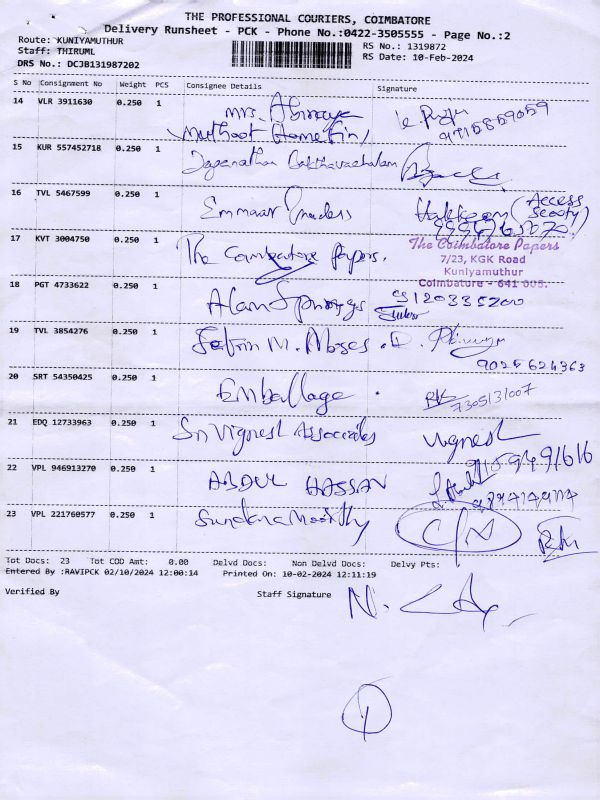 THE PROFESSIONAL COURIERS, COIMBATORE
Delivery Runsheet - PCK - Phone No.:0422-3505555 - Page No.:2
Route: KUNIYAMUTHUR
RS No.: 1319872
Staff: THIRUML
RS Date: 10-Feb-2024
DRS No.: DCJB131987202
S No Consignment No Weight PCS Consignee Details Signature
14 VLR 3911630 0.250 1 Mrs. Abinaya
Muthoot Homefin
15 KUR 557452718 0.250 1 Jaganathan
16 TVL 5467599 0.250 1 Emmaar (Access
Scooty)
17 KVT 3004750 0.250 1 The Coimbatore Papers. The Coimbatore Papers
7/23, KGK Road
Kuniyamuthur
Coimbatore - 641 008.
18 PGT 4733622 0.250 1 Alan Springs
19 TVL 3854276 0.250 1 M. Moses . D.
9025624363
20 SRT 54350425 0.250 1 Emballage .
7305131007
21 EDQ 12733963 0.250 1 Sri Vignesh Associates Vignesh
22 VPL 946913270 0.250 1 ABDUL HASSAN
23 VPL 221760577 0.250 1 Sundara Moorthy
Tot Docs: 23 Tot COD Amt: 0.00 Delvd Docs: Non Delvd Docs: Delvy Pts:
Entered By :RAVIPCK 02/10/2024 12:00:14 Printed On: 10-02-2024 12:11:19
Verified By Staff Signature N.
1